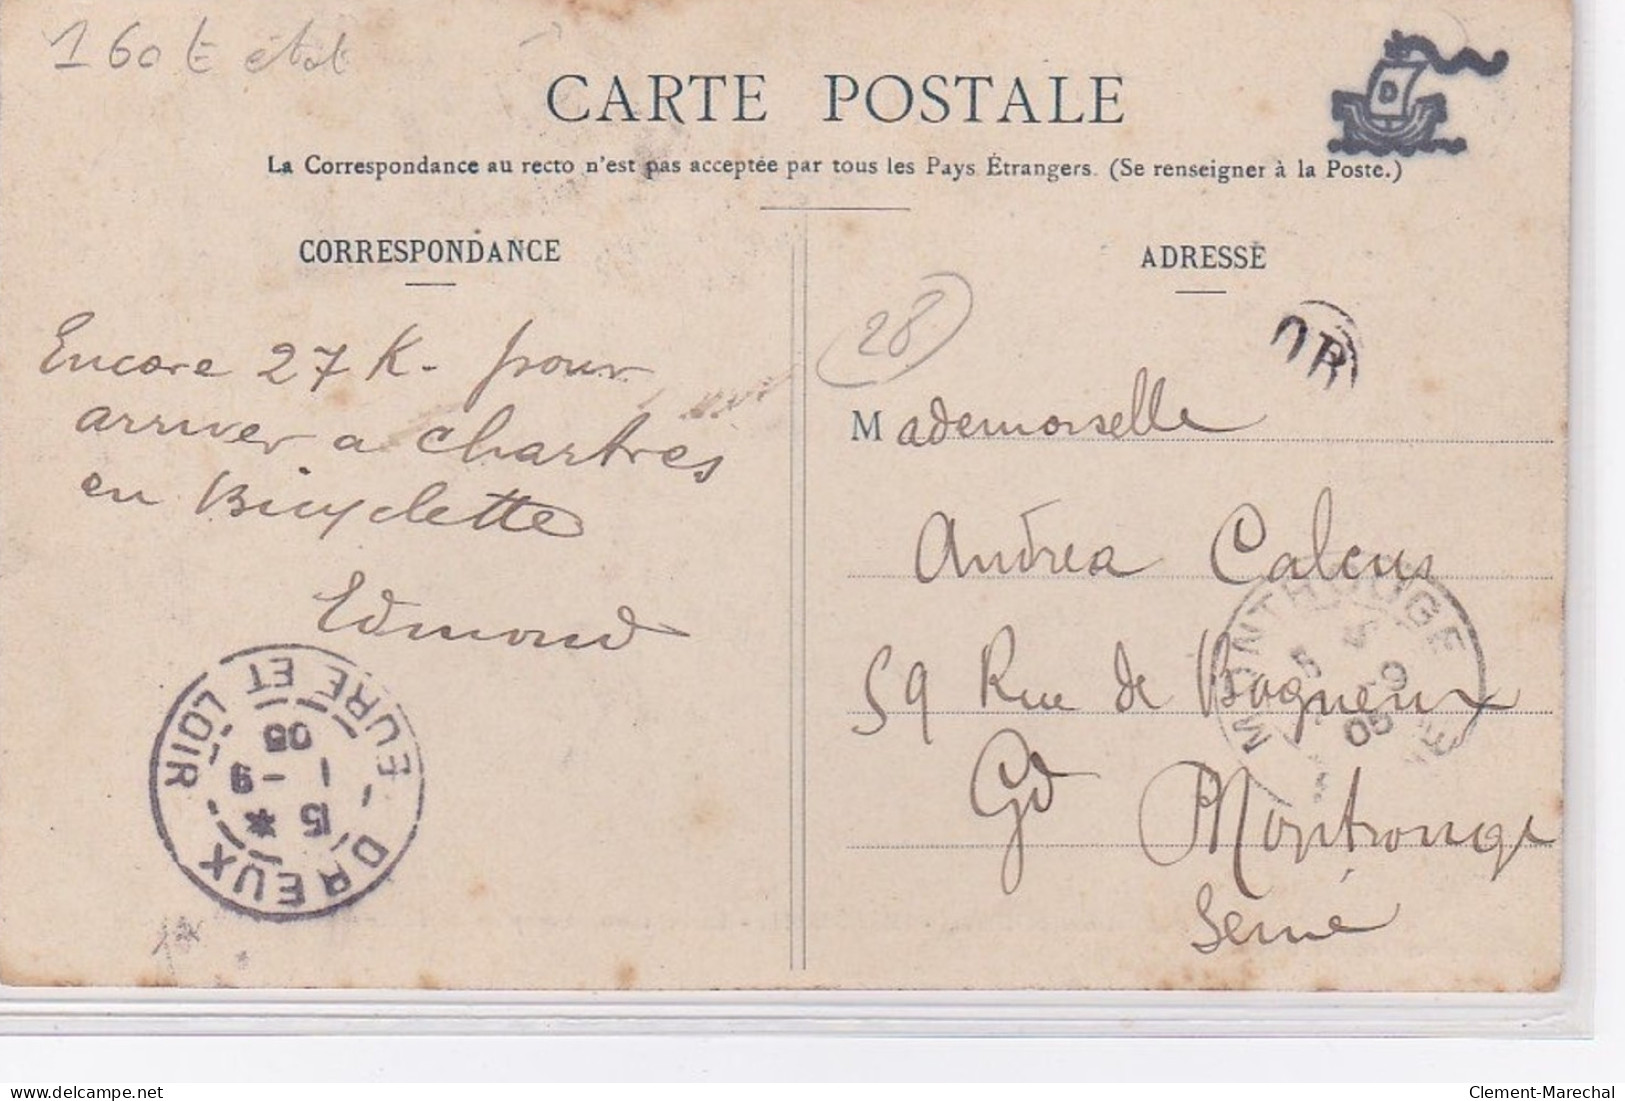 160 E état
CARTE POSTALE
D
La Correspondance au recto n'est pas acceptée par tous les Pays Étrangers. (Se renseigner à la Poste.)
CORRESPONDANCE
Encore 27 K. pour
arriver a chartres
en Bicyclette
Edmond
DREUX
EURE ET LOIR
15 *
1 - 9
05
ADRESSE
28
OR
Mademoiselle
Andrea Calcus
59 Rue de Bagneux
Gd Montrouge
Seine
MONTROUGE
5 - 9
05
delcampe.net
Clement-Marechal